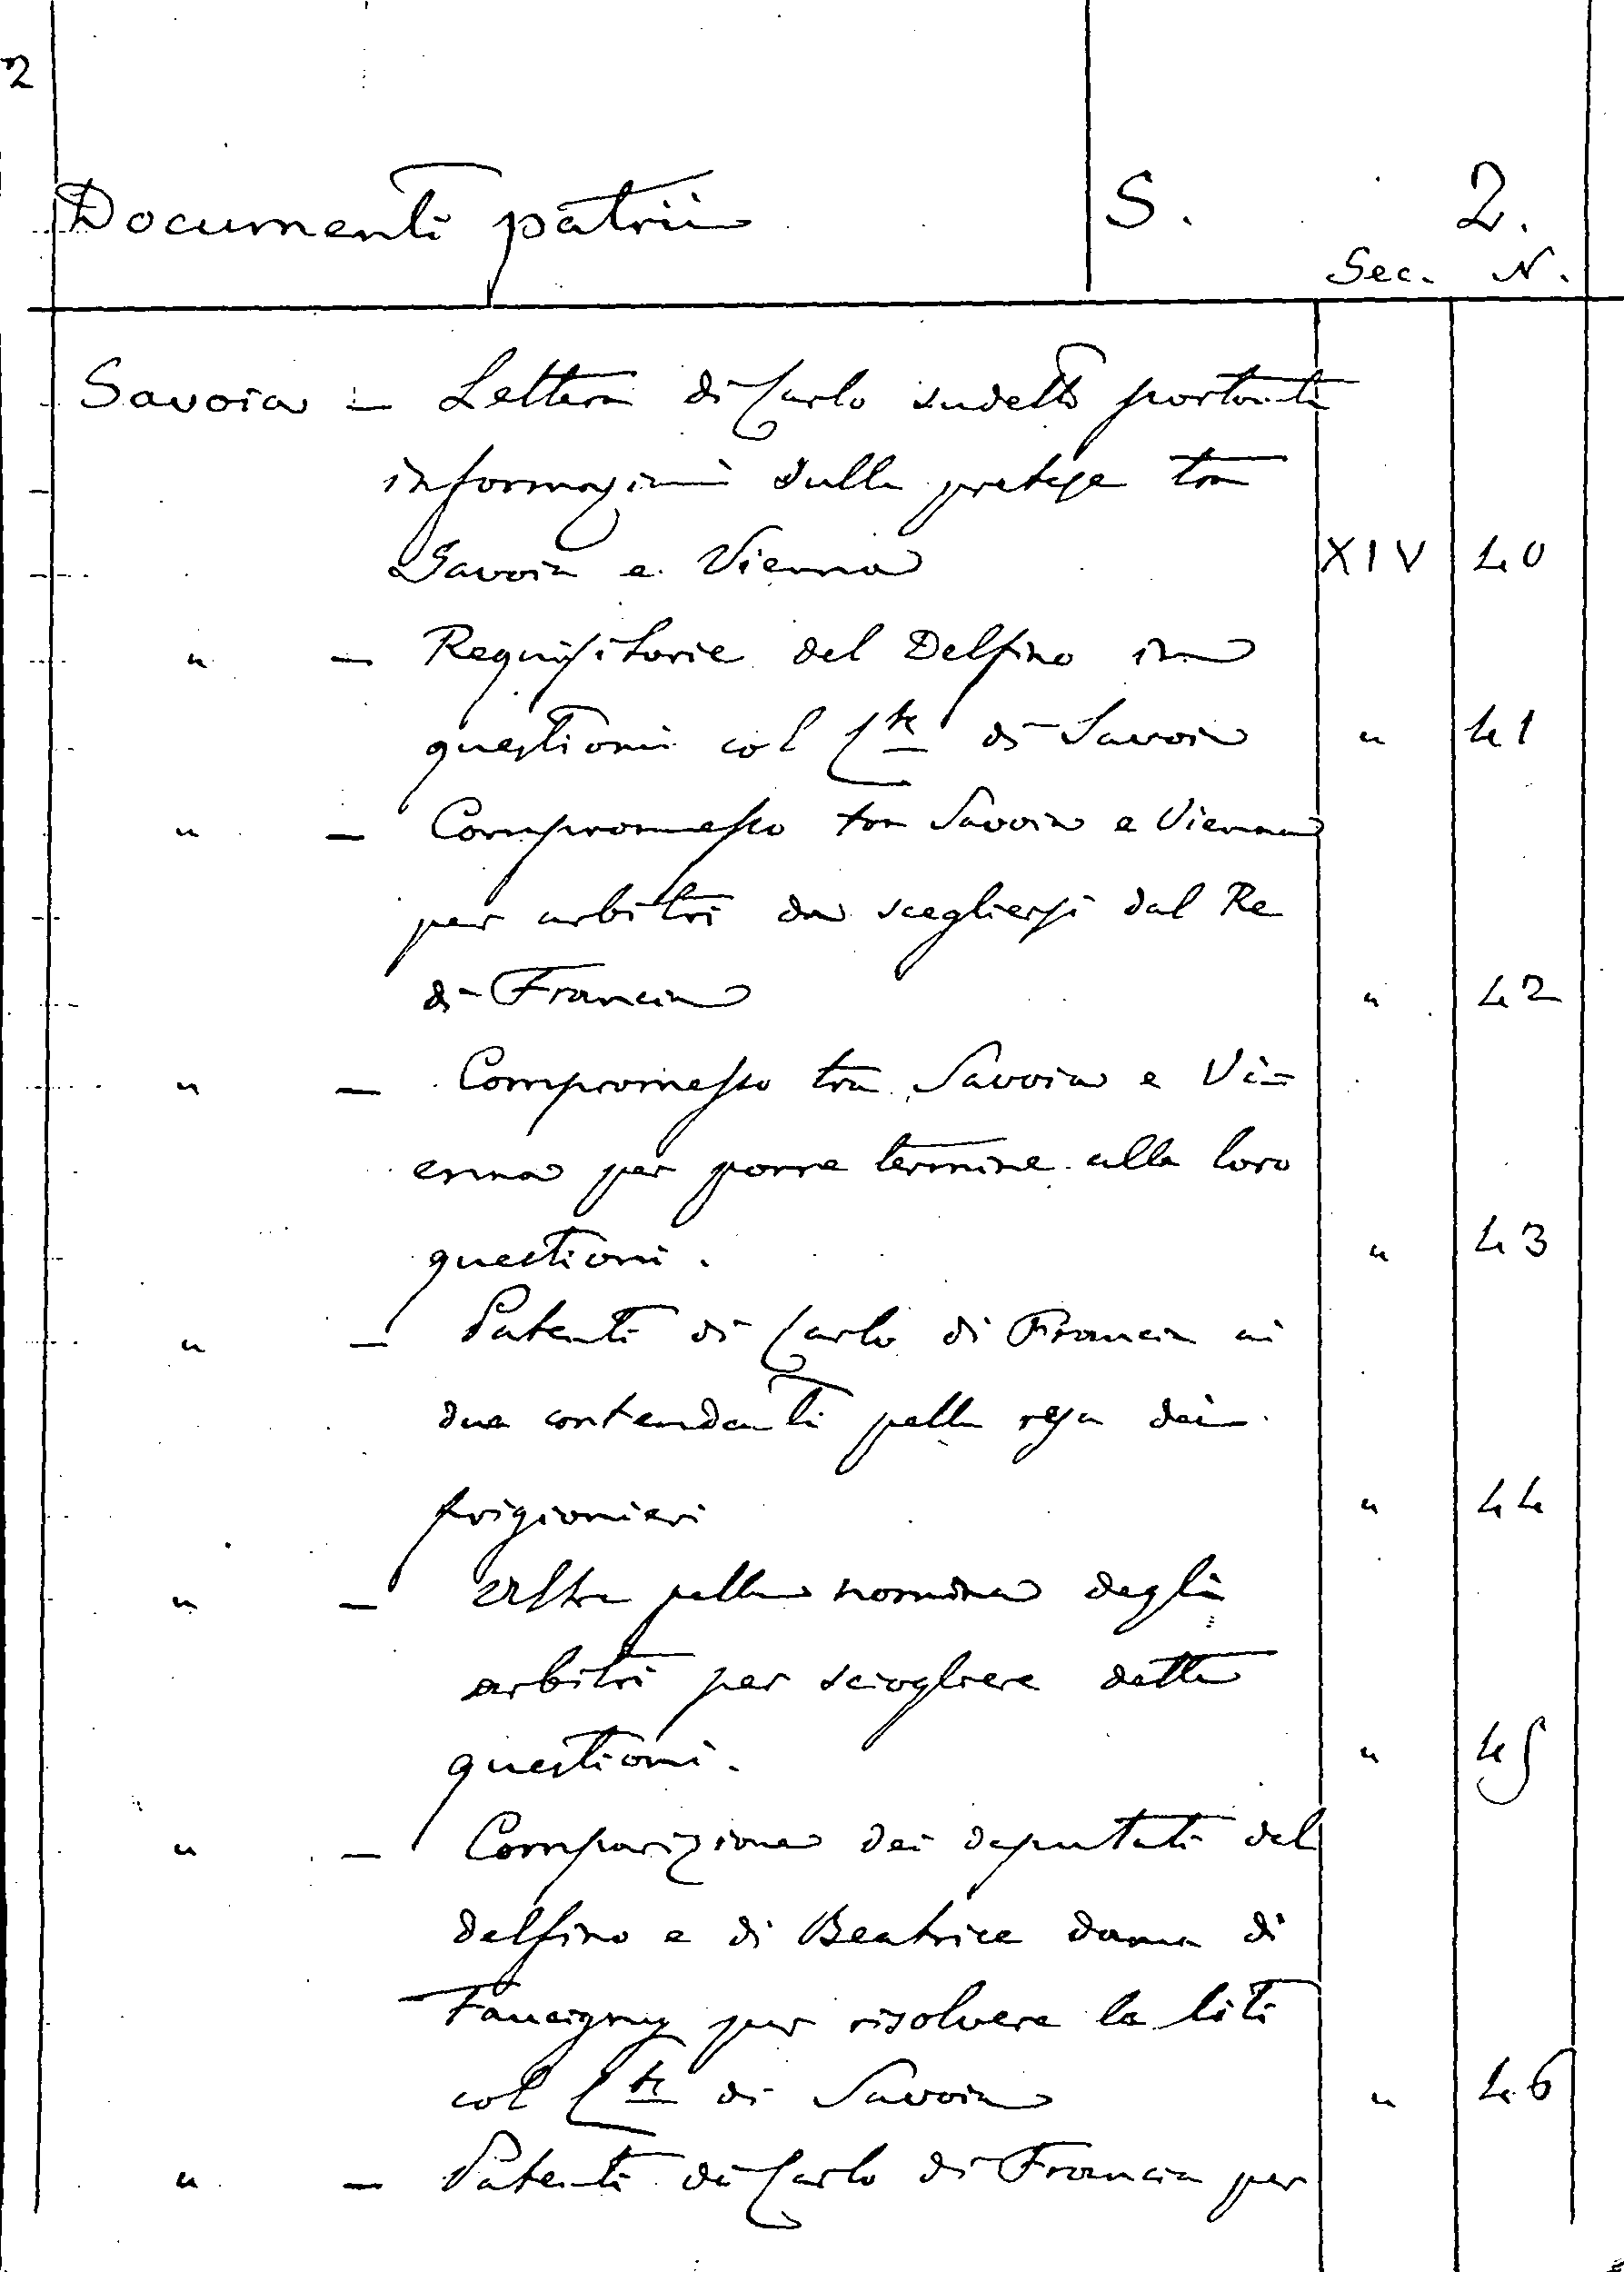 2
Documenti patrii S. 2.
Sec. N.
Savoia — Lettera di Carlo sudetto portante
informazioni sulle pretese tra
Savoia e Vienna XIV 40
" — Requisitorie del Delfino in
questioni col Cte di Savoia " 41
" — Compromesso tra Savoia e Vienna
per arbitri da scegliersi dal Re
di Francia " 42
" — Compromesso tra Savoia e Vi=
enna per porre termine alle loro
questioni. " 43
" — Patenti di Carlo di Francia ai
due contendenti pella resa dei
prigionieri " 44
" — Altre pella nomina degli
arbitri per sciogliere dette
questioni. " 45
" — Comparizione dei deputati del
delfino e di Beatrice dama di
Faucigny per risolvere le liti
col Cte di Savoia " 46
" — Patenti di Carlo di Francia per